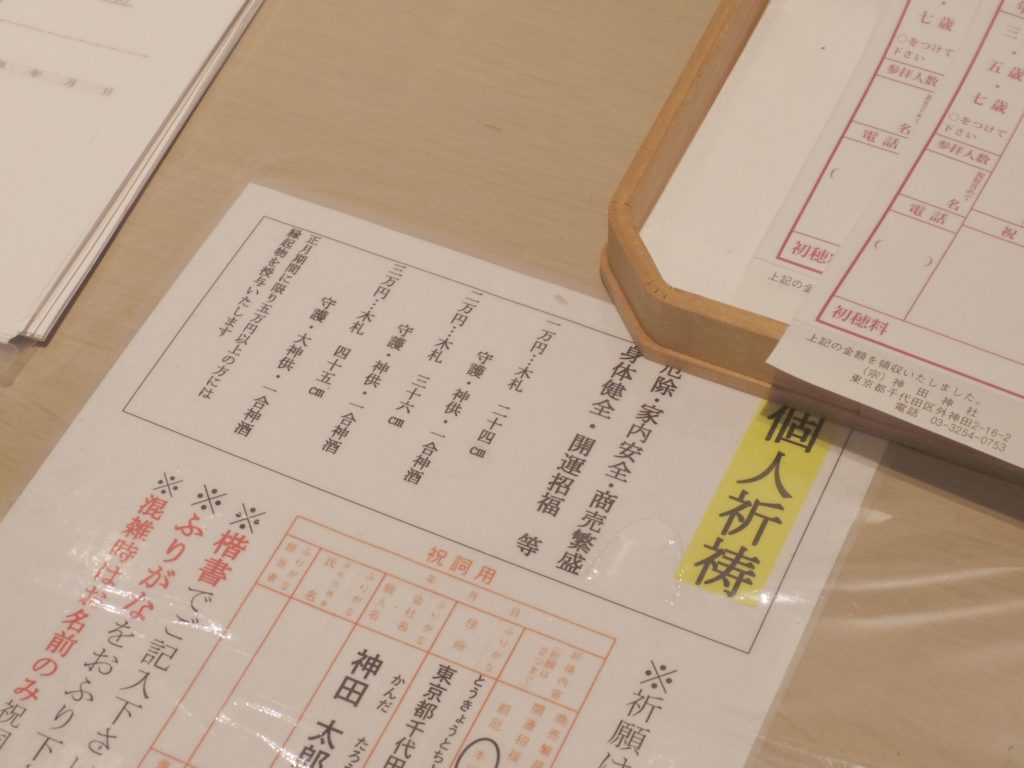 年 月 日
七歳
○をつけて
下さい
参拝人数
名
電話
(
初穂
上記の金
三・五歳・七歳
○をつけて
下さい
参拝人数
名
電話
(
)
祝
初穂料
上記の金額を領収いたしました。
(宗) 神田神社
東京都千代田区外神田2-16-2
電話
03-3254-0753
個人祈祷
厄除・家内安全・商売繁盛
身体健全・開運招福 等
一万円・・木札 二十四㎝
守護・神供・一合神酒
二万円・・木札 三十六㎝
守護・神供・一合神酒
三万円・・木札 四十五㎝
守護・大神供・一合神酒
正月期間に限り五万円以上の方には
縁起物を授与いたします
※祈願は
祝詞用
年 月 日
祈祷内容
祈願は
2つまで
開運招福
ふりがな
住所
とうきょうとち
東京都千代田
ふりがな
会社名
個人名
かんだ たろう
神田 太郎
ふりがな
氏名
ふりがな
担当者名
※楷書でご記入下さい
※ふりがなをおふり下
※混雑時はお名前のみ祝詞